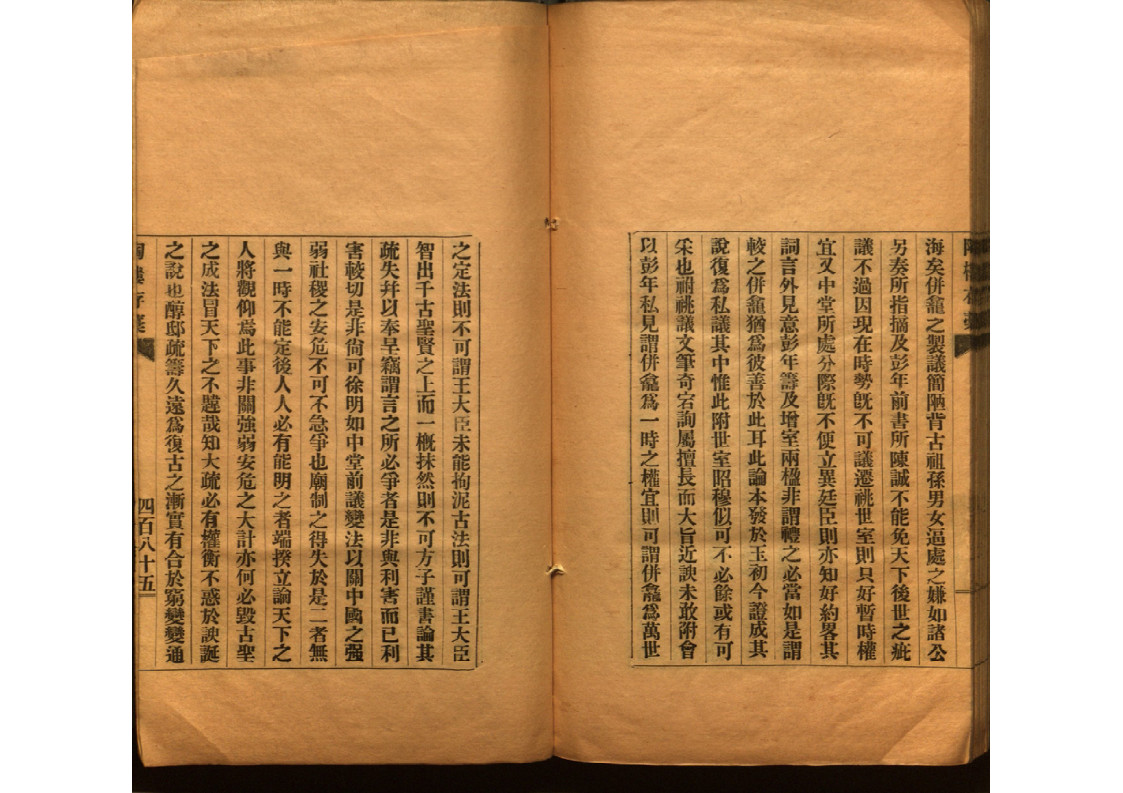 海矣併龕之製議簡陋背古祖孫男女逼處之嫌如諸公
另奏所指摘及彭年前書所陳誠不能免天下後世之疵
議不過因現在時勢旣不可議遷祧世室則只好暫時權
宜又中堂所處分際旣不便立異廷臣則亦知好約畧其
詞言外見意彭年籌及增室兩楹非謂禮之必當如是謂
較之併龕猶爲彼善於此耳此論本發於玉初今證成其
說復爲私議其中惟此附世室昭穆似可不必餘或有可
采也祔祧議文筆奇宕詢屬擅長而大旨近諛未敢附會
以彭年私見謂併龕爲一時之權宜則可謂併龕爲萬世
之定法則不可謂王大臣未能拘泥古法則可謂王大臣
智出千古聖賢之上而一概抹然則不可方子謹書論其
疏失幷以奉呈竊謂言之所必爭者是非與利害而已利
害較切是非尙可徐明如中堂前議變法以關中國之强
弱社稷之安危不可不急爭也廟制之得失於是二者無
與一時不能定後人人必有能明之者端揆立論天下之
人將觀仰爲此事非關強弱安危之大計亦何必毀古聖
之成法冒天下之不韙哉知大疏必有權衡不惑於諛誕
之說也醇邸疏籌久遠爲復古之漸實有合於窮變變通
陶樓存稾
四百八十五